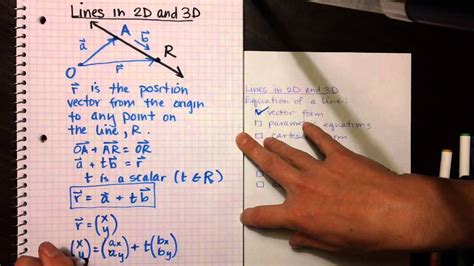 Lines in 2D and 3D
A
b⃗
a⃗
R
O
r⃗
r⃗ is the position
vector from the origin
to any point on
the line, R.
OA⃗ + AR⃗ = OR⃗
a⃗ + t b⃗ = r⃗
t is a scalar (t ∈ R)
r⃗ = a⃗ + t b⃗
r⃗ = (x y)
(x y) = (ax ay) + t (bx by)
Lines in 2D and 3D
Equation of a line:
vector form
parametric equations